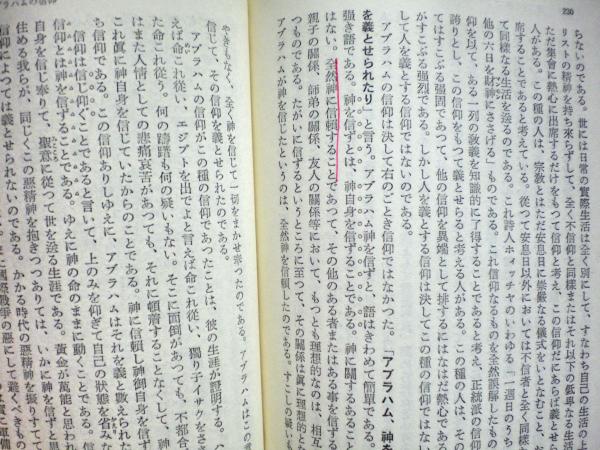 230
ちないのである。世には日常の實際生活は全く別にして、すなわち自己の生活の上
リストの精神を持ち來らずして、全く不信仰と同樣またはそれ以下の低卑なる生活
たゞ集會に熱心に出席するだけをもつて信仰と考え、この信仰だにあらば義とせら
人がある。この種の人は、宗敎とはたゞ安息日に崇嚴なる儀式をいとなむこと、お
することであると考えている。從つて安息日以外においては不信者と全く同樣、
て同樣なる生活を送るのである。これ詩人ホイッチヤのいわゆる「一週日のうち
他の六日を財神にささげる」ものである。これ信仰なるものを全然誤解したもの
仰を以て、ある一列の敎義を知識的に了得することであると考え、正統派の信仰
誇りとし、この信仰をもつて義とせらると考える人がある。この種の人は、その
てはすこぶる强固であつて、他の信仰を異端として排するにはなはだ熱心である
がすこぶる强烈である。しかし人を義とする信仰は決してこの種の信仰ではない
して人を義とする信仰ではないのである。
アブラハムの信仰は決して右のごとき信仰ではなかつた。「アブラハム、神を
を義とせられたり」と言う。アブラハム神を信ずと、語はきわめて簡單である。
强き語である。神を信ずとは、神自身を信ずることである。神に關する
はない。全然神に信賴することであつて、その他のある者またはある事を信ずる
親子の關係、師弟の關係、友人の關係等において、もつとも理想的なのは、相互
つものである。たがいに信ずるというところに至つて、その關係は眞に理想的とな
アブラハムが神を信じたというのは、全然神を信賴したのである。すこしの疑いも
やきもなく、全く神を信じて一切をまかせ奉つたのである。アブラハムはこの意
信じて、その信仰を義とせられたのである。
アブラハムの信仰がこの種の信仰であつたことは、彼の生涯が證明する。「
えば命これ從い、エジプトを出でよと言えば命これ從い、獨り子イサクをささ
た命これ從う。何の躊躇もなく何の疑いもない。そこに面倒があつても、不都合
はまた人情としての悲痛哀苦があつても、それに頓着することなくして、
これ眞に神自身を信じていたからのことである。神に信賴し神御自身を信ず
ち信仰である。この信仰ありしゆえに、アブラハムはそれを義と數えられた
信仰は信じ仰ぐことであると言いて、上のみを仰ぎて自己の狀態を省み
信仰とは神を信ずることである。ゆえに神の命のままに動くことである。
自身を信じ奉りて、聖意に從つて世を送る生涯である。黃金が萬能と思われ
住める我らが、同じくこの惡精神を抱きつつありては、いかに神を信ずと
信仰によつては義とせられないのである。かかる時代の惡精神を振りすてて